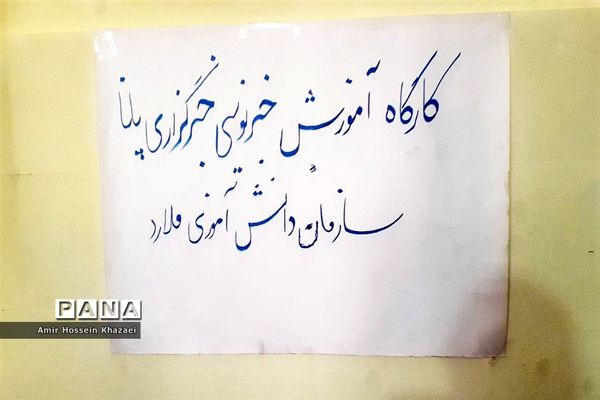 کارگاه آموزش خبرنویسی خبرگزاری پانا
سازمان دانش آموزی ملارد
PANA
Amir Hossein Khazaei